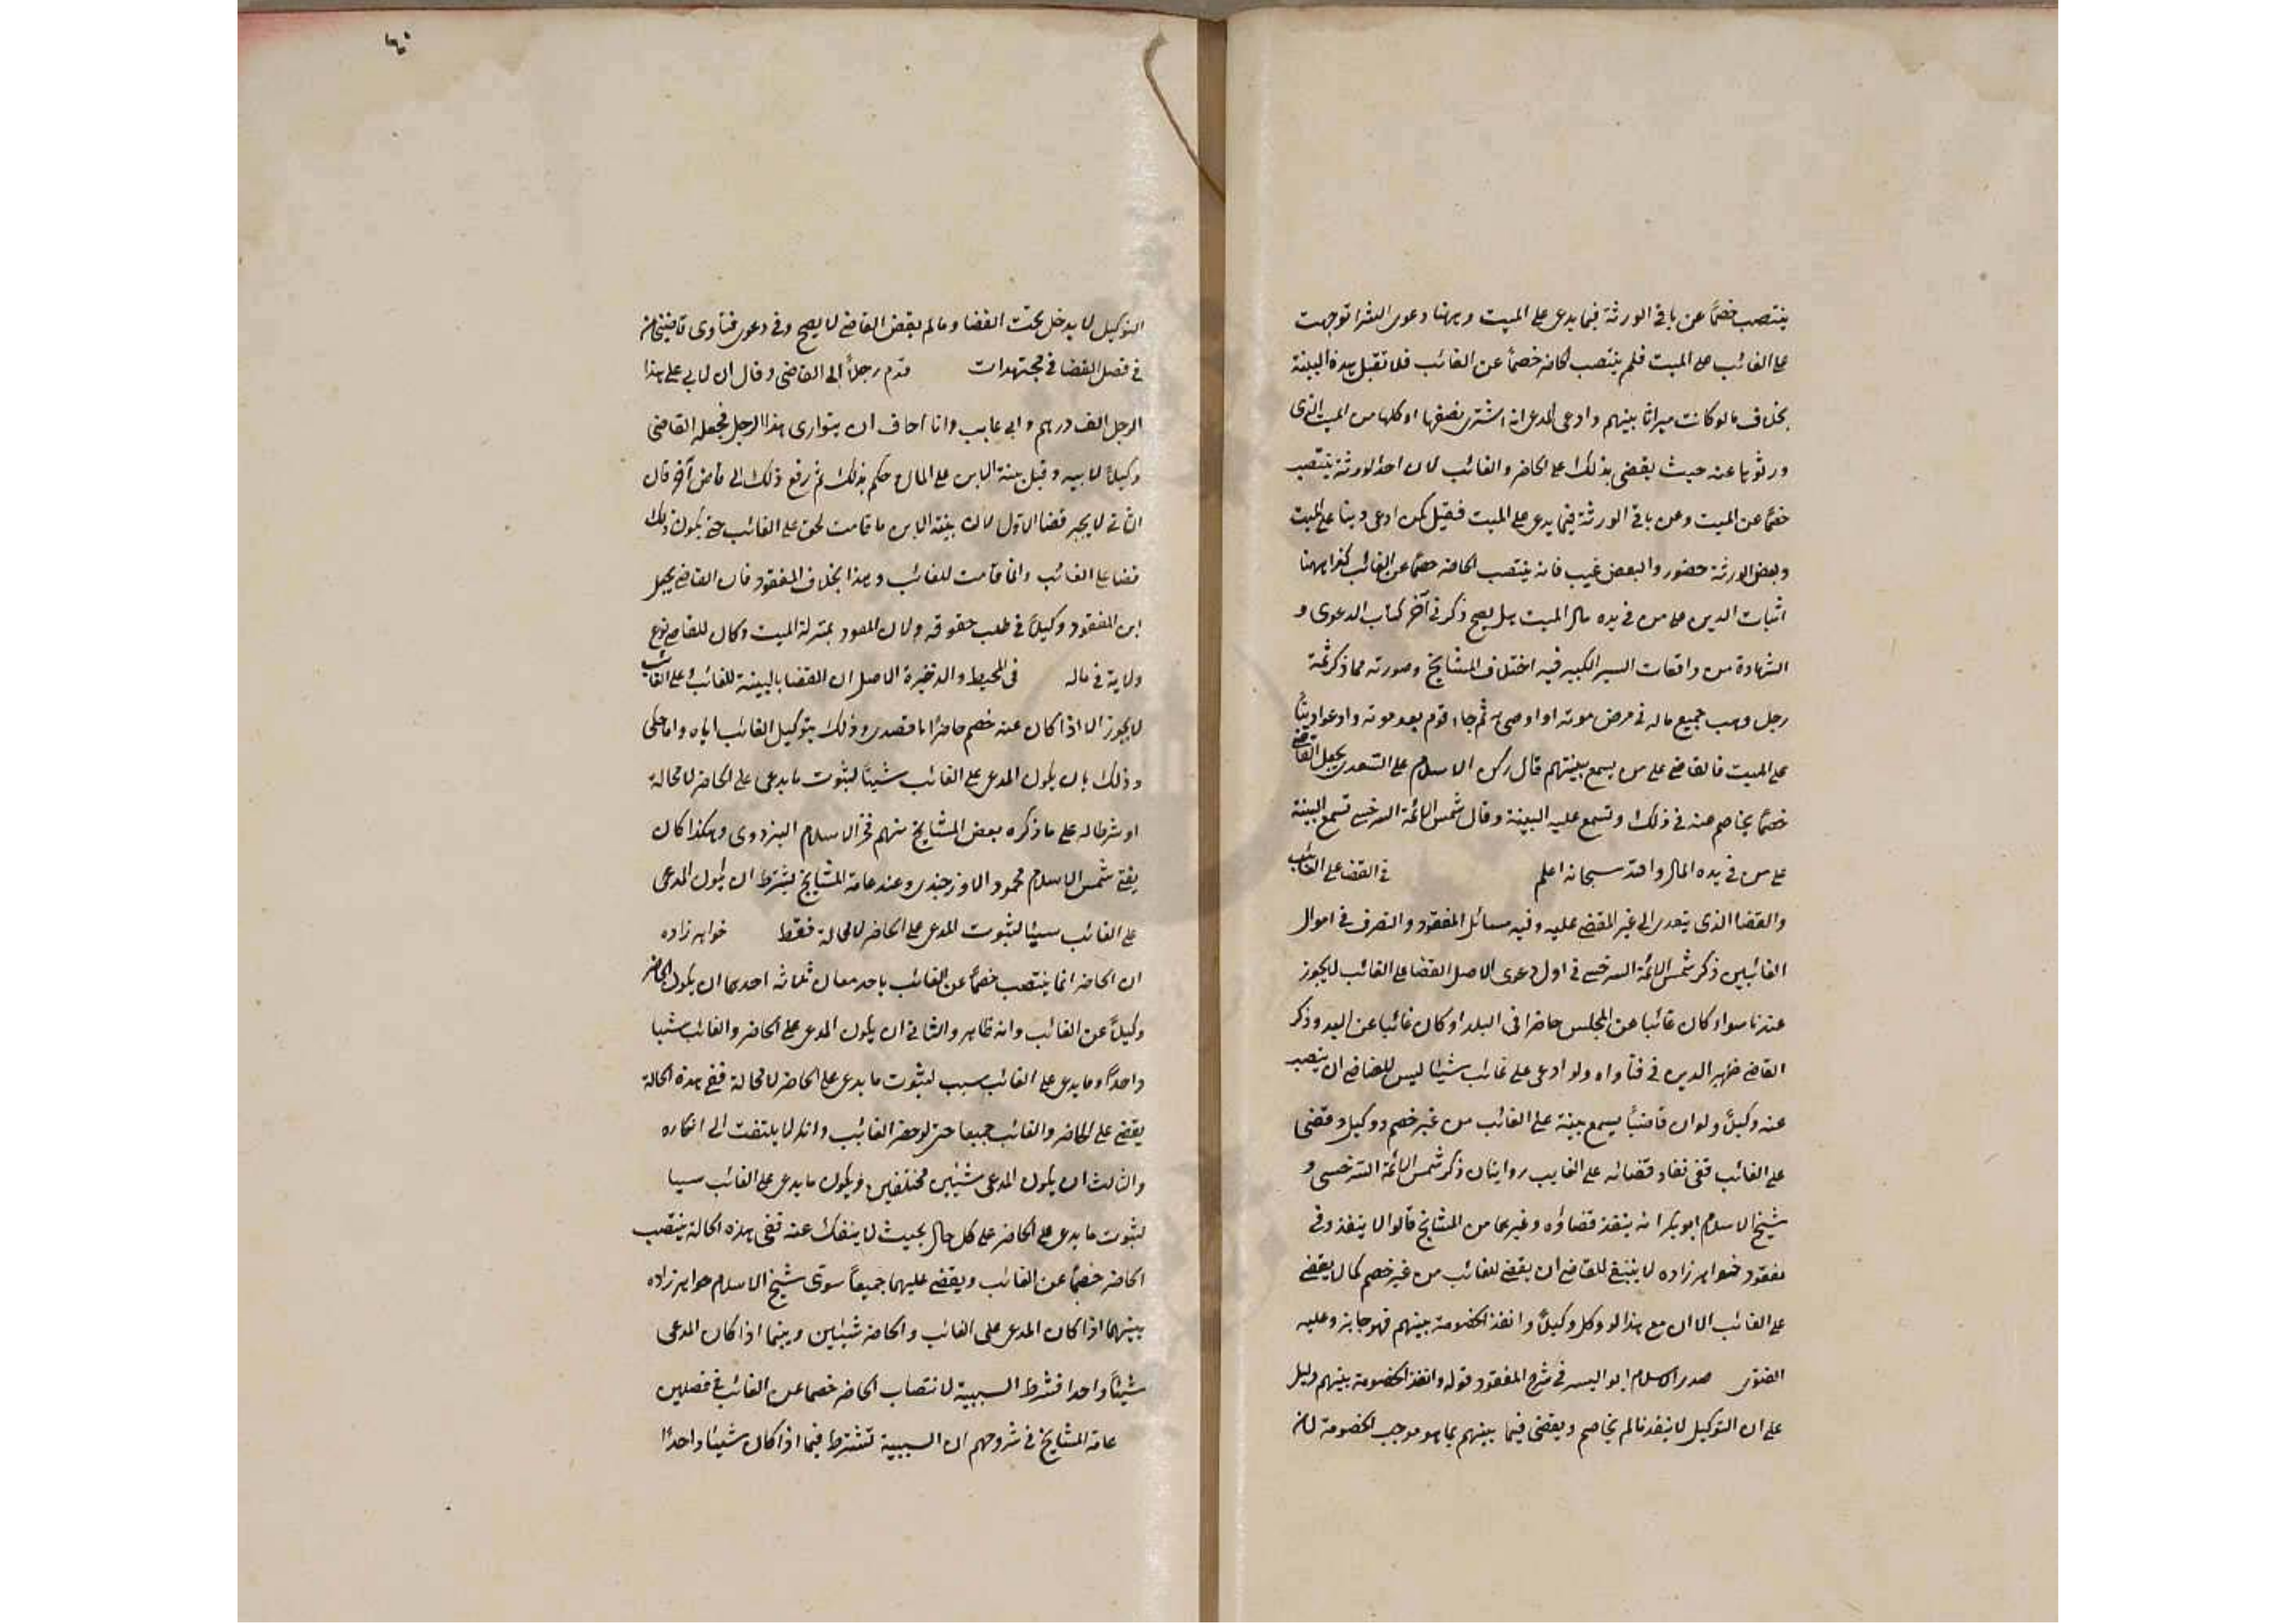 ينتصب خصمًا عن باقى الورثة فيما يدعى على الميت وههنا دعوى الشرا توجهت
على الغائب لا على الميت فلم ينتصب الحاضر خصمًا عن الغائب فلا تقبل هذه البينة
بخلاف ما لو كانت ميراثا بينهم وادعى المدعى انه اشترى نصفها او كلها من الميت الذى
ورثوها عنه حيث يقضى بذلك على الحاضر والغائب لان احد الورثة ينتصب
خصمًا عن الميت وعن باقى الورثة فيما يدعى على الميت فقيل كمن ادعى دينا على الميت
وبعض الورثة حضور والبعض غيب فانه ينتصب الحاضر خصمًا عن الغائب كذا ههنا
اثبات الدين على من فى يده مال الميت هل يصح ذكر فى آخر كتاب الدعوى و
الشهادة من واقعات السير الكبير فيه اختلاف المشايخ وصورته مما ذكر ثمة
رجل وهب جميع ماله فى مرض موته او اوصى به ثم جاء قوم بعد موته وادعوا دينًا
على الميت فالقاضى على من يسمع بينتهم قال ركن الاسلام على السعدى يجعل القاضى
خصمًا يخاصم عنه فى ذلك وتسمع عليه البينة وقال شمس الائمة السرخسى تسمع البينة
على من فى يده المال والله سبحانه اعلم فى القضا على الغائب
والقضا الذى يتعدى الى غير المقضى عليه وفيه مسائل المفقود والتصرف فى اموال
الغائبين ذكر شمس الائمة السرخسى فى اول دعوى الاصل القضا على الغائب لا يجوز
عندنا سواء كان غائبا عن المجلس حاضرا فى البلد او كان غائبا عن البلد وذكر
القاضى ظهير الدين فى فتاواه ولو ادعى على غائب شيئا ليس للقاضى ان ينصب
عنه وكيلًا ولو ان قاضيًا يسمع بينة على الغائب من غير خصم ووكيل وقضى
على الغائب ففى نفاد قضائه على الغايب روايتان ذكر شمس الائمة السرخسى و
شيخ الاسلام ابو بكر انه ينفذ قضاؤه وغيرهما من المشايخ قالوا لا ينفذ وفى
مفقود خواهر زاده لا ينبغى للقاضى ان يقضى للغائب من غير خصم كما لا يقضى
على الغائب الا ان مع هذا لو وكل وكيلًا وانفذ الخصومة بينهم فهو جايز وعليه
الفتوى صدر الاسلام ابو اليسر فى شرح المفقود قوله وانفذ الخصومة بينهم دليل
على ان التوكيل لا ينفذ ما لم يخاصم ويقضى فيما بينهم بما هو موجب الخصومة لان
التوكيل لا يدخل تحت القضا وما لم يقض القاضى لا يصح وفى دعوى فتاوى قاضيخان
فى فصل القضا فى مجتهدات قدم رجلًا الى القاضى وقال ان لابى على هذا
الرجل الف درهم وابى غايب وانا اخاف ان يتوارى هذا الرجل فجعله القاضى
وكيلًا لابيه وقبل بينة الابن على المال وحكم بذلك ثم رفع ذلك الى قاض آخر قال
الثانى لا يجيز قضا الاول لان بينة الابن ما قامت لحق على الغائب حتى يكون ذلك
قضا على الغائب وانما قامت للغائب وهذا بخلاف المفقود فان القاضى يجعل
ابن المفقود وكيلًا فى طلب حقوقه ولان المفقود بمنزلة الميت وكان للقاضى نوع
ولاية فى ماله فى المحيط والذخيرة الاصل ان القضا بالبينة للغائب وعلى الغائب
لا يجوز الا اذا كان عنه خصم حاضر اما قصدى وذلك بتوكيل الغائب اياه واما حكمى
وذلك بان يكون المدعى على الغائب شيئًا لثبوت ما يدعى على الحاضر لا محالة
او شرطا له على ما ذكره بعض المشايخ منهم فخر الاسلام البزدوى وهكذا كان
يفتى شمس الاسلام محمود الاوزجندى وعند عامة المشايخ يشترط ان يكون المدعى
على الغائب سببا لثبوت المدعى على الحاضر لا محالة فقط خواهر زاده
ان الحاضر انما ينتصب خصمًا عن الغائب باحد معان ثلاثة احدها ان يكون الحاضر
وكيلًا عن الغائب وانه ظاهر والثانى ان يكون المدعى على الحاضر والغائب شيئا
واحدًا وما يدعى على الغائب سبب لثبوت ما يدعى على الحاضر لا محالة ففى هذه الحالة
يقضى على الحاضر والغائب جميعا حتى لو حضر الغائب وانكر لا يلتفت الى انكاره
والثالث ان يكون المدعى شيئين مختلفين ويكون ما يدعى على الغائب سببا
لثبوت ما يدعى على الحاضر على كل حال بحيث لا ينفك عنه ففى هذه الحالة ينتصب
الحاضر خصمًا عن الغائب ويقضى عليهما جميعًا سوّى شيخ الاسلام خواهر زاده
بينهما اذا كان المدعى على الغائب والحاضر شيئين وبينما اذا كان المدعى
شيئًا واحدا فشرط السببية لانتصاب الحاضر خصما عن الغائب فى فصلين
عامة المشايخ فى شروحهم ان السببية تشترط فيما اذا كان شيئا واحدًا